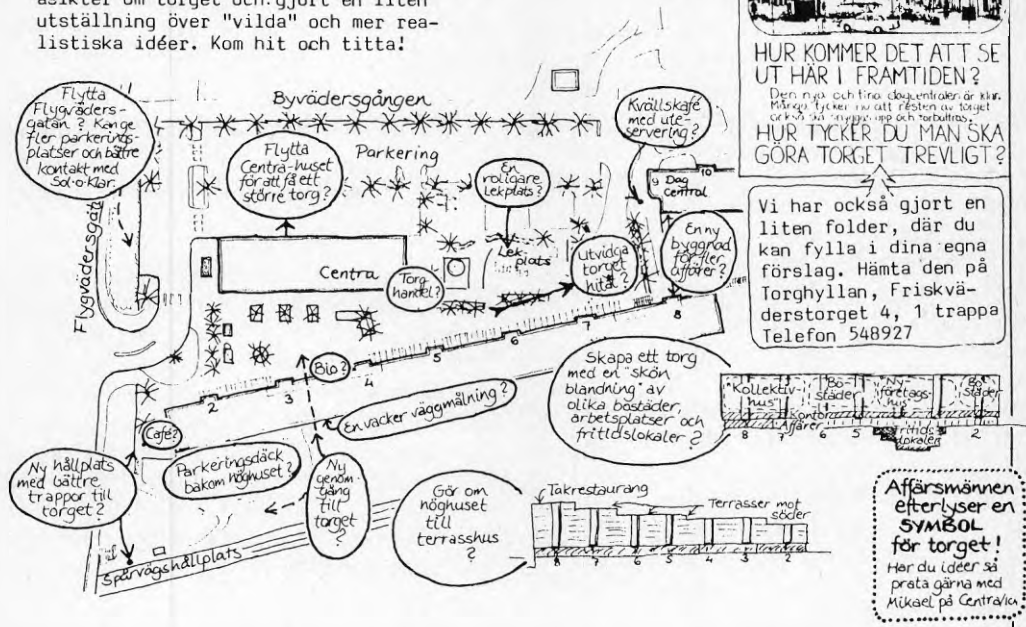 åsikter om torget och gjort en liten
utställning över "vilda" och mer rea-
listiska idéer. Kom hit och titta!
HUR KOMMER DET ATT SE
UT HÄR I FRAMTIDEN?
Den nya och fina dagcentralen är klar.
Många tycker nu att resten av torget
också ska snyggas upp och förbättras.
HUR TYCKER DU MAN SKA
GÖRA TORGET TREVLIGT?
Vi har också gjort en
liten folder, där du
kan fylla i dina egna
förslag. Hämta den på
Torghyllan, Friskvä-
derstorget 4, 1 trappa
Telefon 548927
Flytta
Flygväders-
gatan? Kan ge
fler parkerings-
platser och bättre
kontakt med
Sol-o-klar.
Byvädersgången
Flygvädersgat
Parkering
Flytta
Centra-huset
för att få ett
större torg?
Kvällskafé
med ute-
servering?
En
roligare
Lekplats?
9 Dag
central
10
Lek
plats
Centra
Torg
handel?
Utvidga
torget
hitåt?
En ny
byggnad
för fler
affärer?
2
3
4
5
6
7
8
Bio?
Café?
En vacker väggmålning?
Parkeringsdäck
bakom höghuset?
Ny
genom-
gång
till
torget
?
Ny hållplats
med bättre
trappor till
torget?
Spårvägshållplats
Skapa ett torg
med en "skön
blandning" av
olika bostäder,
arbetsplatser och
fritidslokaler
?
"Kollektiv-
hus"
Bo-
städer
Ny-
företags-
hus
Bo-
städer
Kontor
Affärer
Fritids
lokaler
8 7 6 5 2
Gör om
höghuset
till
terrasshus
?
Takrestaurang
Terrasser mot
söder
8 7 6 5 4 3 2
Affärsmännen
efterlyser en
SYMBOL
för torget!
Har du idéer så
prata gärna med
Mikael på Centra/ICA